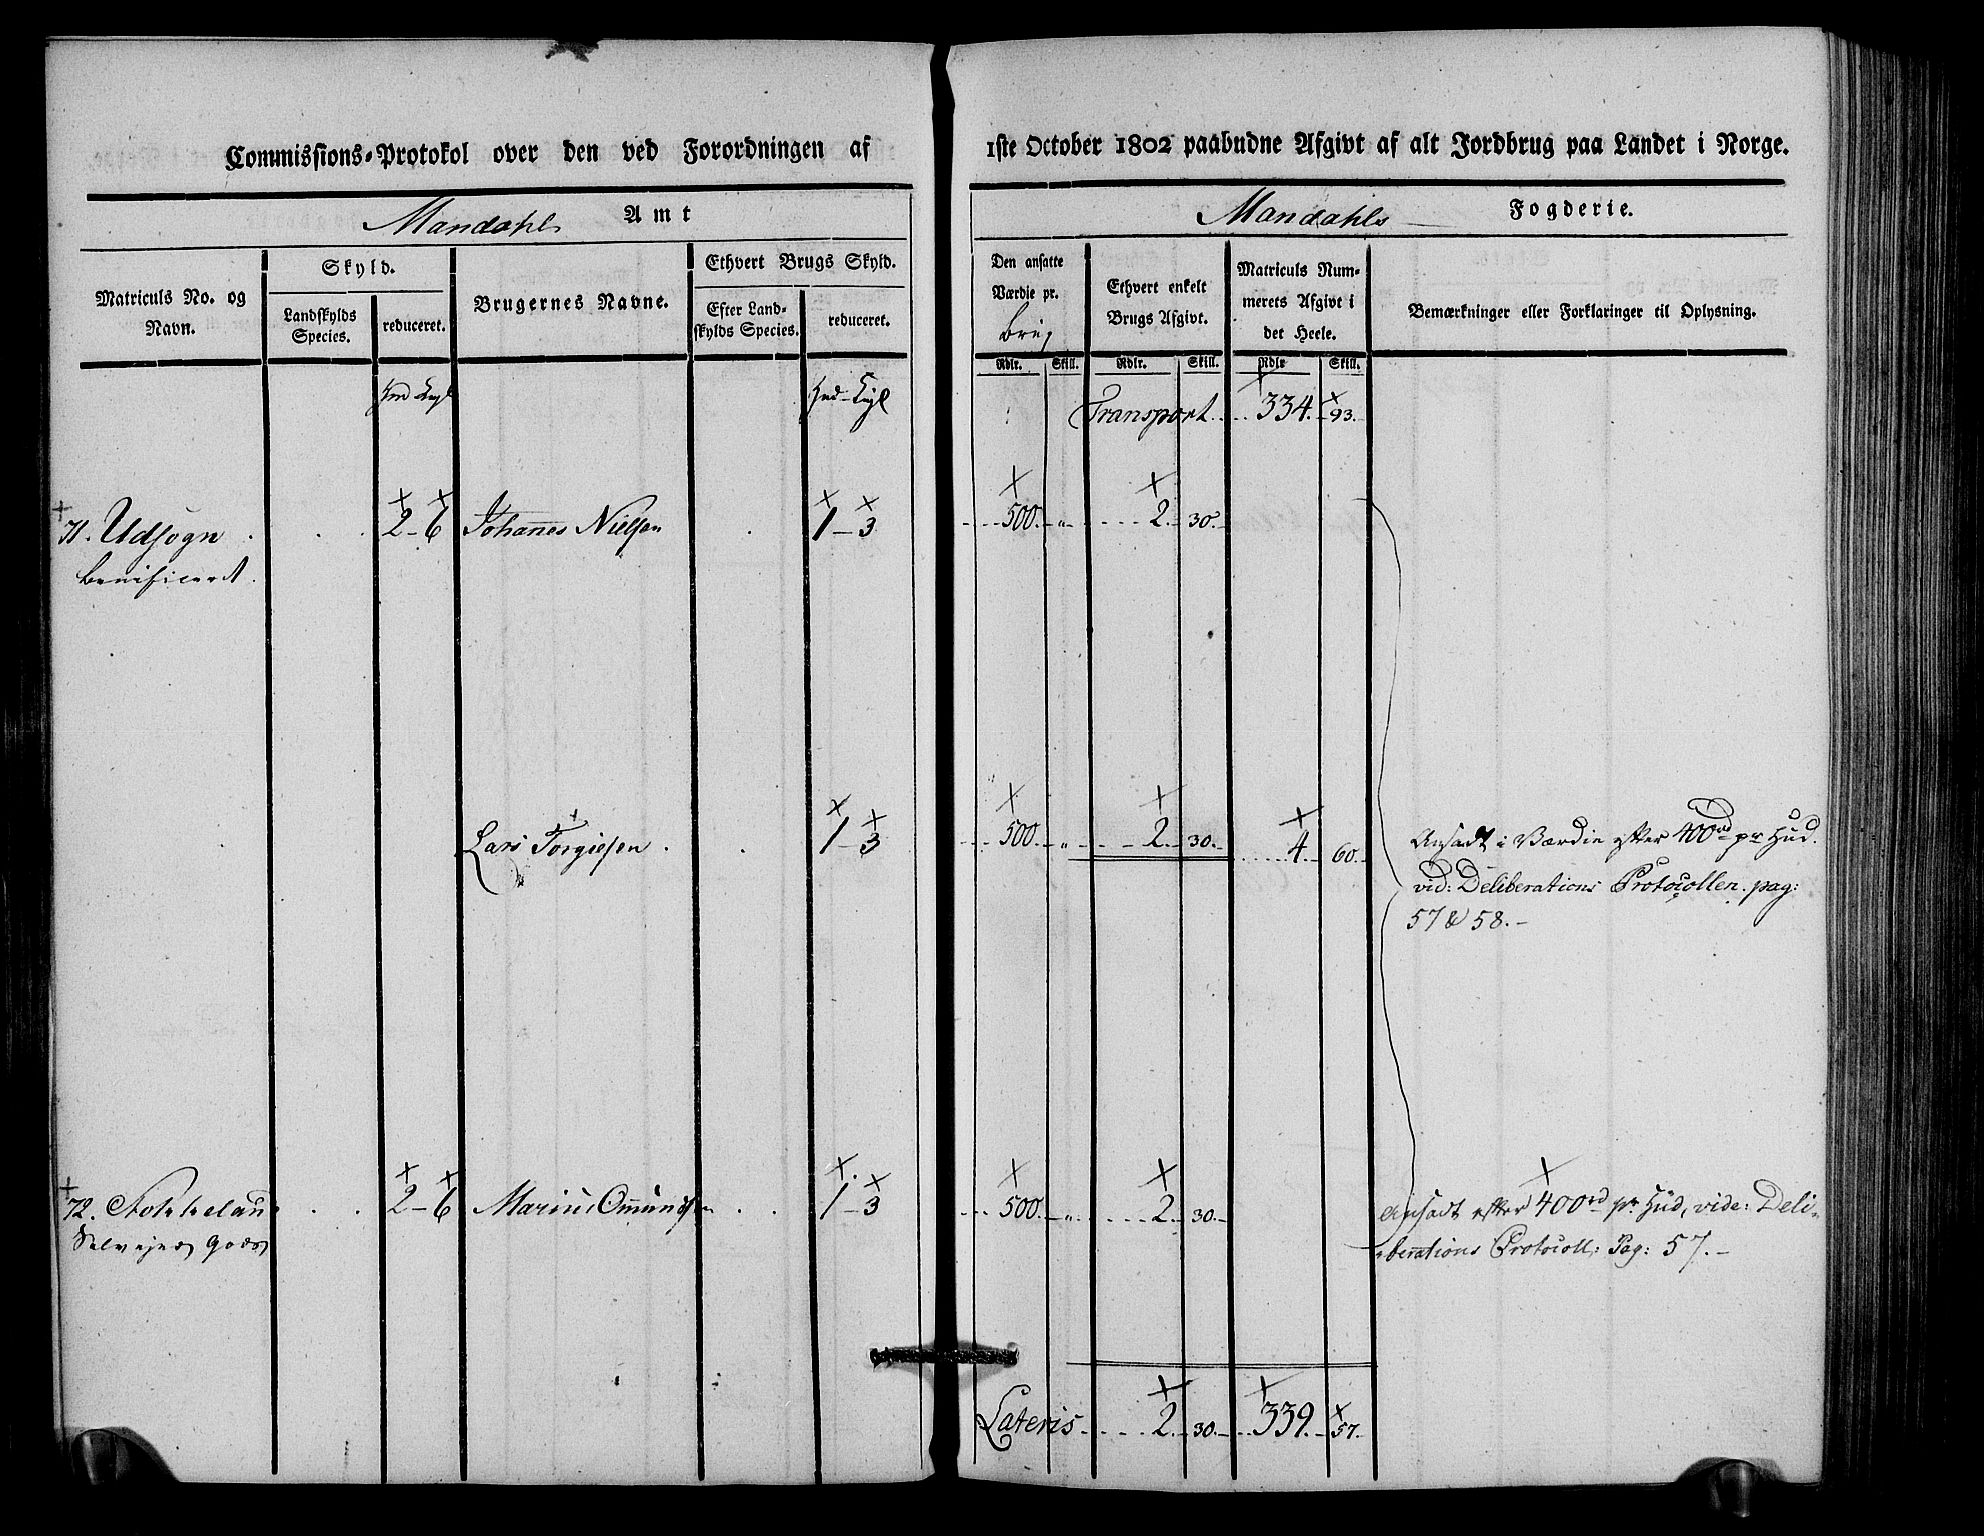 Commissions-Protokol over den ved Forordningen af 1ste October 1802 paabudne Afgivt af alt Jordbrug paa Landet i Norge.
Mandahls Amt
Mandahls Fogderie.
Matriculs No. og Navn.
Skyld.
Landskylds Species.
reduceret.
Brugernes Navne.
Ethvert Brugs Skyld.
Efter Landskylds Species.
reduceret.
Den ansatte Værdie pr. brug
Ethvert enkelt Brugs Afgivt.
Matriculs Nummerets Afgivt i det Heele.
Bemærkninger eller Forklaringer til Oplysning.
Rdlr. Skill. Rdlr. Skill. Rdlr Skill.
Transport 334. 93.
71. Udsogn 2 - 6 Johannes Nielsen 1 - 3 500. „ 2. 30.
benificeret.
Lars Torgiesen 1 - 3 500. „ 2. 30. 4. 60. Ansadt i Værdie efter 400rd pr Hud.
vid: Deliberations Protocollen. pag:
57 & 58.-
72. 2 - 6 Omundsen 1 - 3 500. „ 2. 30. Ansadt efter 400rd pr Hud, vide: Deli-
Selvejer Gods -berations Protocoll: Pag: 57.-
Lateris 2. 30. 339. 57.